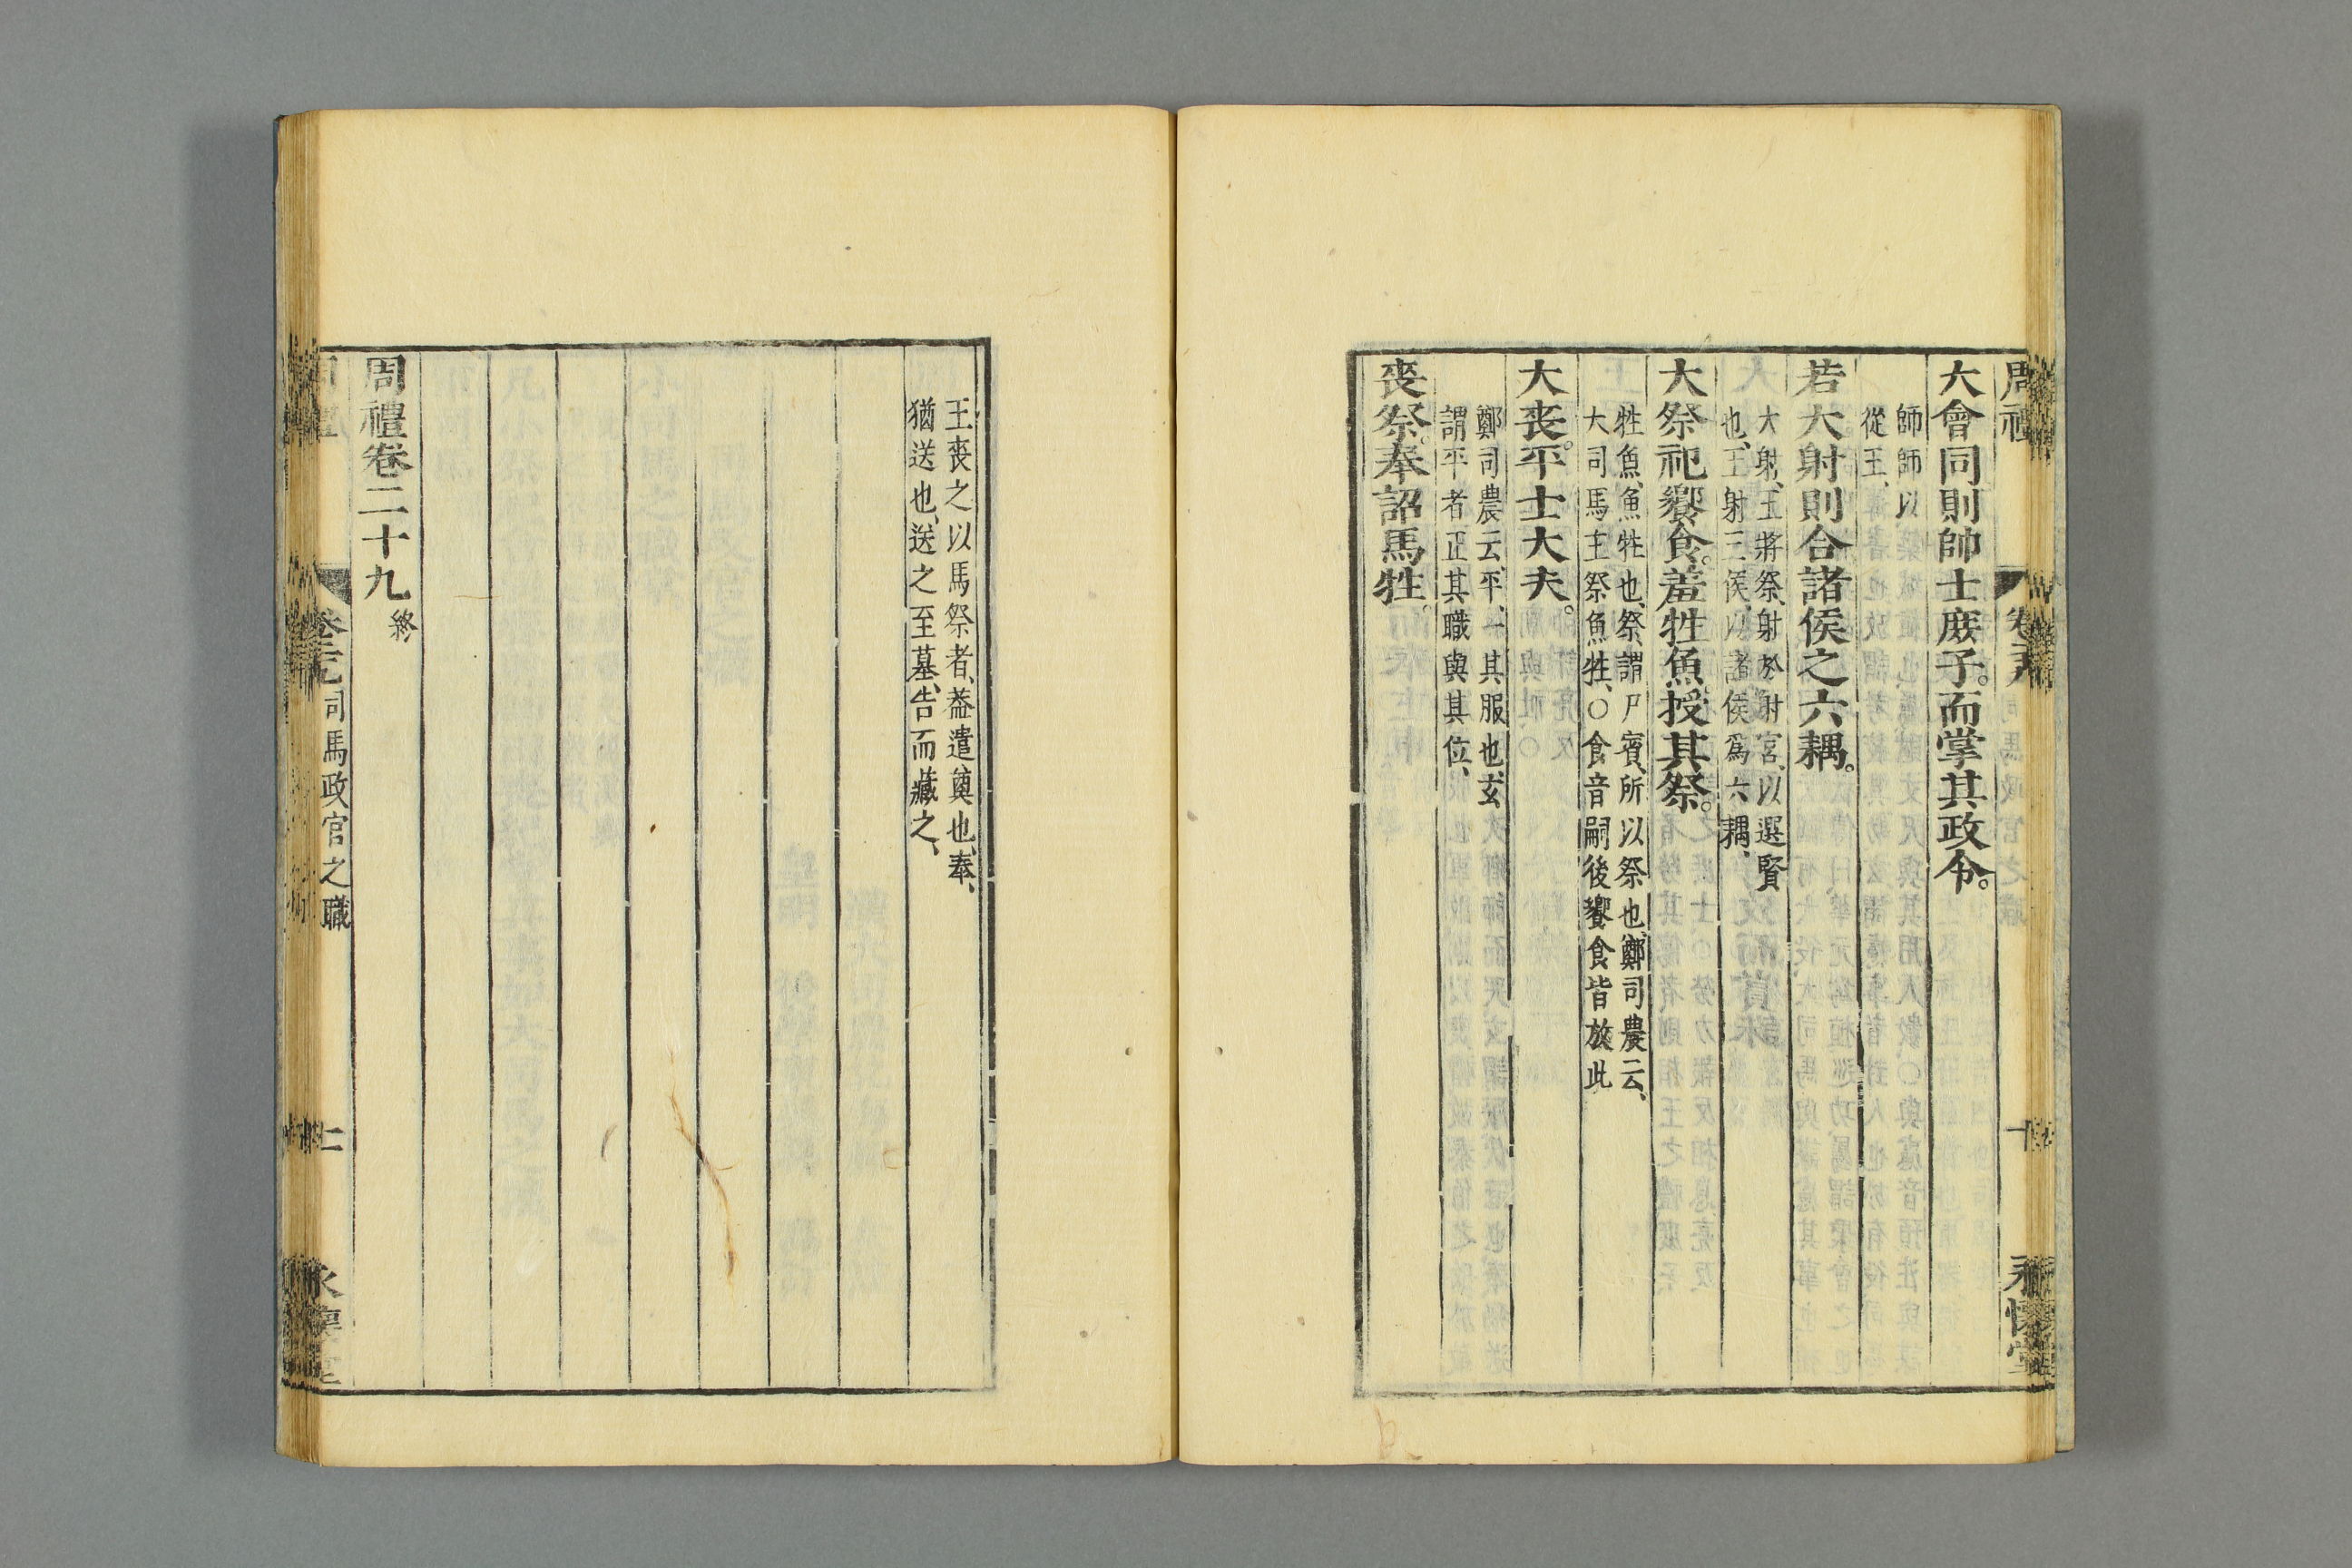 大會同則帥士庶子。而掌其政令。
師師以
從王、
若大射則合諸侯之六耦。
大射、王將祭、射於射宮、以選賢
也、王射三侯、以諸侯爲六耦、
大祭祀饗食。羞牲魚授其祭。
牲魚、魚牲也、祭、謂尸賓、所以祭也、鄭司農云、
大司馬主祭魚牲、〇食音嗣後饗食皆放此
大喪。平士大夫。
鄭司農云、平、一其服也、玄
謂平者正其職與其位、
喪祭。奉詔馬牲。
王喪之以馬祭者、葢遣奠也、奉、
猶送也、送之至墓、告而藏之、
周禮卷二十九終
司馬政官之職
永懷堂